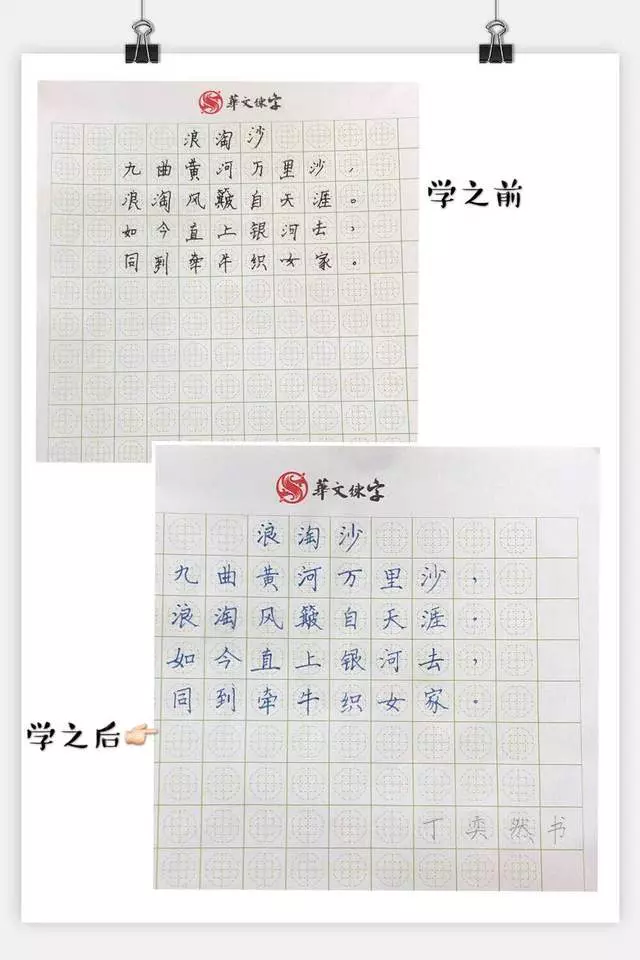 華文练字
浪淘沙
九曲黄河万里沙，
浪淘风簸自天涯。
如今直上银河去，
同到牵牛织女家。
学之前
華文练字
浪淘沙
九曲黄河万里沙，
浪淘风簸自天涯.
如今直上银河去，
同到牵牛织女家.
学之后
丁奕然书